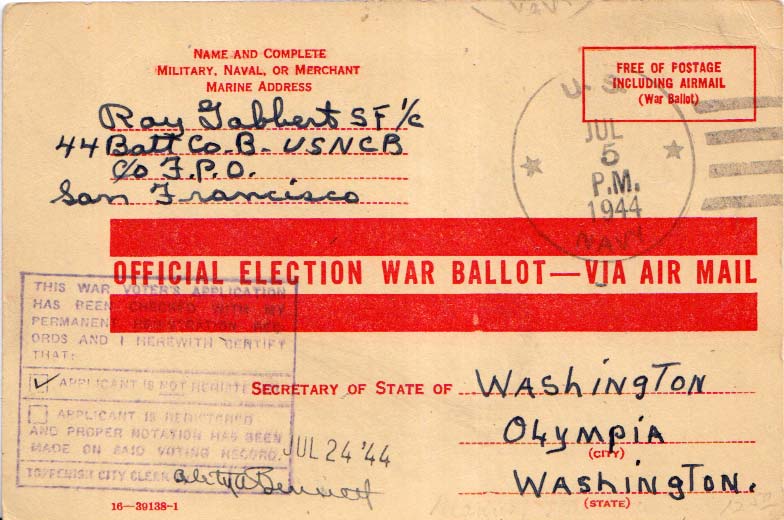 NAVY
NAME AND COMPLETE
MILITARY, NAVAL, OR MERCHANT
MARINE ADDRESS
Ray Gabbert SF 1/c
44 Batt Co. B - USNCB
c/o F.P.O.
San Francisco
FREE OF POSTAGE
INCLUDING AIRMAIL
(War Ballot)
U. S.
JUL
5
P.M.
1944
NAVY
OFFICIAL ELECTION WAR BALLOT—VIA AIR MAIL
THIS WAR VOTER'S APPLICATION
HAS BEEN CHECKED WITH MY
PERMANENT REGISTRATION REC-
ORDS AND I HEREWITH CERTIFY
THAT:
✓ APPLICANT IS NOT REGISTERED
APPLICANT IS REGISTERED
AND PROPER NOTATION HAS BEEN
MADE ON SAID VOTING RECORD.
TOPPENISH CITY CLERK
JUL 24 '44
SECRETARY OF STATE OF WASHINGTON
OLYMPIA
(CITY)
WASHINGTON.
(STATE)
16—39138-1